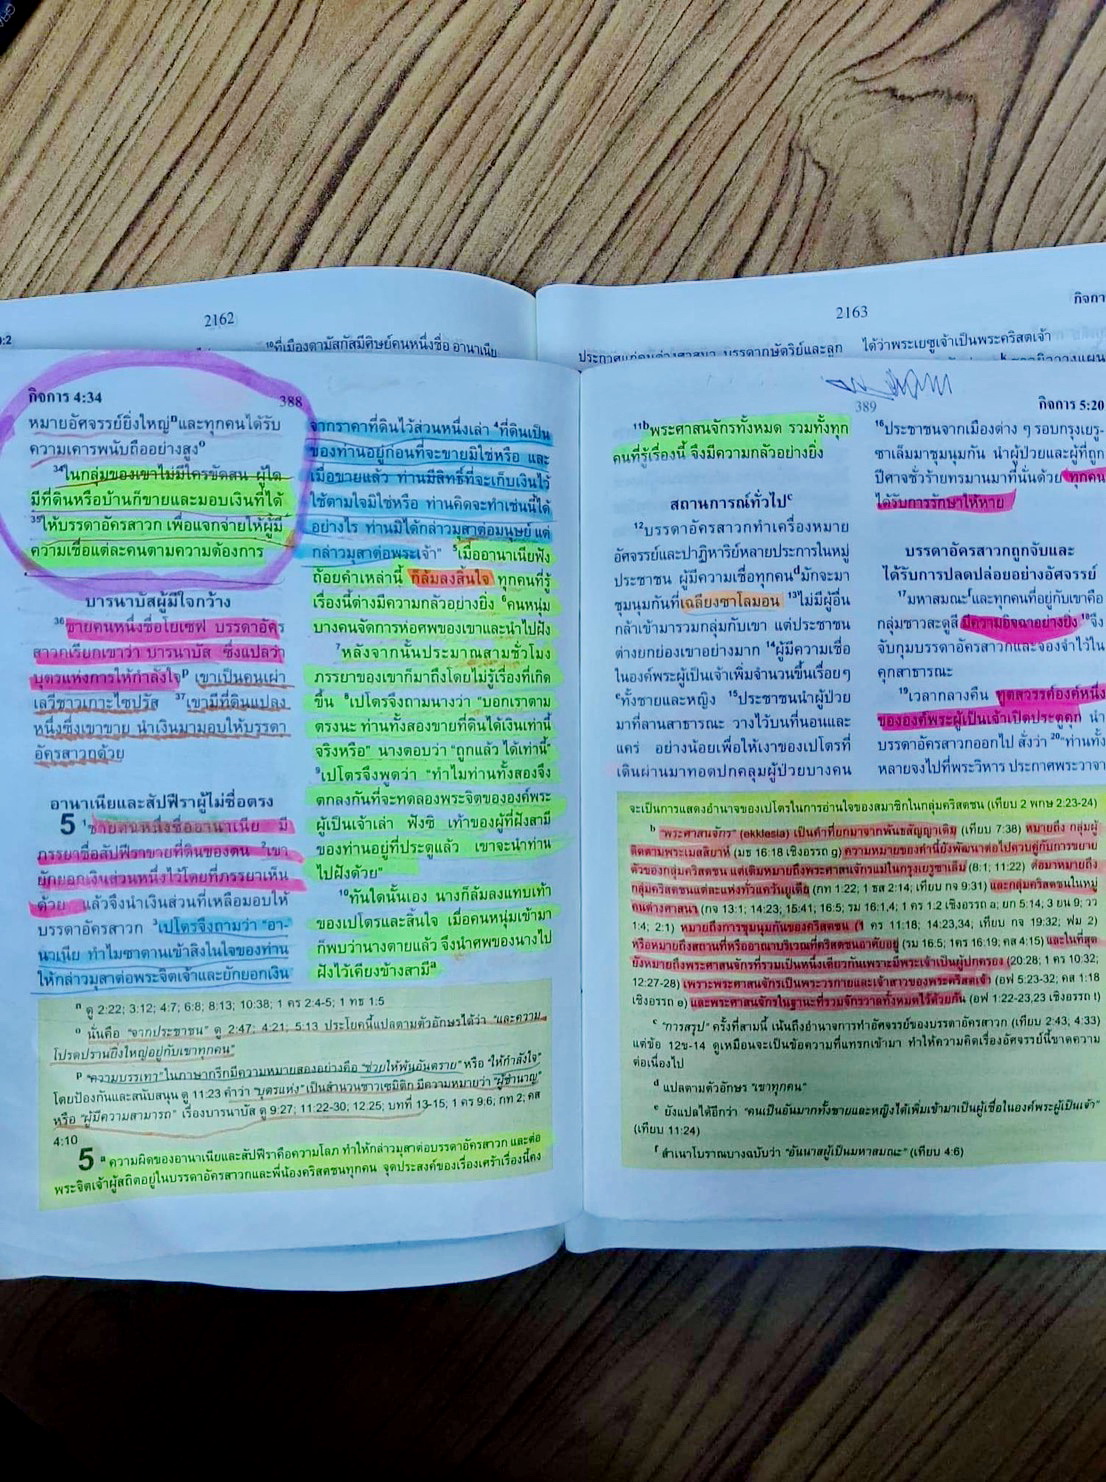 2162
10ที่เมืองดามัสกัสมีศิษย์คนหนึ่งชื่อ อานาเนีย
2163
กิจกา
ประกาศแก่คนต่างศาสนา บรรดากษัตริย์และลูก
ได้ว่าพระเยซูเจ้าเป็นพระคริสตเจ้า
กิจการ 4:34
388
หมายอัศจรรย์ยิ่งใหญ่nและทุกคนได้รับ
ความเคารพนับถืออย่างสูงo
34ในกลุ่มของเขาไม่มีใครขัดสน ผู้ใด
มีที่ดินหรือบ้านก็ขายและมอบเงินที่ได้
35ให้บรรดาอัครสาวก เพื่อแจกจ่ายให้ผู้มี
ความเชื่อแต่ละคนตามความต้องการ
บารนาบัสผู้มีใจกว้าง
36ชายคนหนึ่งชื่อโยเซฟ บรรดาอัคร
สาวกเรียกเขาว่า บารนาบัส ซึ่งแปลว่า
บุตรแห่งการให้กำลังใจp เขาเป็นคนเผ่า
เลวีชาวเกาะไซปรัส 37เขามีที่ดินแปลง
หนึ่งซึ่งเขาขาย นำเงินมามอบให้บรรดา
อัครสาวกด้วย
อานาเนียและสัปฟีราผู้ไม่ซื่อตรง
5 1ชายคนหนึ่งชื่ออานาเนีย มี
ภรรยาชื่อสัปฟีราขายที่ดินของตน 2เขา
ยักยอกเงินส่วนหนึ่งไว้โดยที่ภรรยาเห็น
ด้วย แล้วจึงนำเงินส่วนที่เหลือมอบให้
บรรดาอัครสาวก 3เปโตรจึงถามว่า "อา-
นาเนีย ทำไมซาตานเข้าสิงในใจของท่าน
ให้กล่าวมุสาต่อพระจิตเจ้าและยักยอกเงิน
จากราคาที่ดินไว้ส่วนหนึ่งเล่า 4ที่ดินเป็น
ของท่านอยู่ก่อนที่จะขายมิใช่หรือ และ
เมื่อขายแล้ว ท่านมีสิทธิ์ที่จะเก็บเงินไว้
ใช้ตามใจมิใช่หรือ ท่านคิดจะทำเช่นนี้ได้
อย่างไร ท่านมิได้กล่าวมุสาต่อมนุษย์ แต่
กล่าวมุสาต่อพระเจ้า" 5เมื่ออานาเนียฟัง
ถ้อยคำเหล่านี้ ก็ล้มลงสิ้นใจ ทุกคนที่รู้
เรื่องนี้ต่างมีความกลัวอย่างยิ่ง 6คนหนุ่ม
บางคนจัดการห่อศพของเขาและนำไปฝัง
7หลังจากนั้นประมาณสามชั่วโมง
ภรรยาของเขาก็มาถึงโดยไม่รู้เรื่องที่เกิด
ขึ้น 8เปโตรจึงถามนางว่า "บอกเราตาม
ตรงนะ ท่านทั้งสองขายที่ดินได้เงินเท่านี้
จริงหรือ" นางตอบว่า "ถูกแล้ว ได้เท่านี้"
9เปโตรจึงพูดว่า "ทำไมท่านทั้งสองจึง
ตกลงกันที่จะทดลองพระจิตขององค์พระ
ผู้เป็นเจ้าเล่า ฟังซิ เท้าของผู้ที่ฝังสามี
ของท่านอยู่ที่ประตูแล้ว เขาจะนำท่าน
ไปฝังด้วย"
10ทันใดนั้นเอง นางก็ล้มลงแทบเท้า
ของเปโตรและสิ้นใจ เมื่อคนหนุ่มเข้ามา
ก็พบว่านางตายแล้ว จึงนำศพของนางไป
ฝังไว้เคียงข้างสามีa
n ดู 2:22; 3:12; 4:7; 6:8; 8:13; 10:38; 1 คร 2:4-5; 1 ทธ 1:5
o นั่นคือ "จากประชาชน" ดู 2:47; 4:21; 5:13 ประโยคนี้แปลตามตัวอักษรได้ว่า "และความ
โปรดปรานยิ่งใหญ่อยู่กับเขาทุกคน"
p "ความบรรเทา" ในภาษากรีกมีความหมายสองอย่างคือ "ช่วยให้พ้นอันตราย" หรือ "ให้กำลังใจ"
โดยป้องกันและสนับสนุน ดู 11:23 คำว่า "บุตรแห่ง" เป็นสำนวนชาวเซมิติก มีความหมายว่า "ผู้ชำนาญ"
หรือ "ผู้มีความสามารถ" เรื่องบารนาบัส ดู 9:27; 11:22-30; 12:25; บทที่ 13-15; 1 คร 9:6; กท 2; คส
4:10
5 a ความผิดของอานาเนียและสัปฟีราคือความโลภ ทำให้กล่าวมุสาต่อบรรดาอัครสาวก และต่อ
พระจิตเจ้าผู้สถิตอยู่ในบรรดาอัครสาวกและพี่น้องคริสตชนทุกคน จุดประสงค์ของเรื่องเศร้าเรื่องนี้คง
389
กิจการ 5:20
11bพระศาสนจักรทั้งหมด รวมทั้งทุก
คนที่รู้เรื่องนี้ จึงมีความกลัวอย่างยิ่ง
สถานการณ์ทั่วไปc
12บรรดาอัครสาวกทำเครื่องหมาย
อัศจรรย์และปาฏิหาริย์หลายประการในหมู่
ประชาชน ผู้มีความเชื่อทุกคนdมักจะมา
ชุมนุมกันที่เฉลียงซาโลมอน 13ไม่มีผู้อื่น
กล้าเข้ามารวมกลุ่มกับเขา แต่ประชาชน
ต่างยกย่องเขาอย่างมาก 14ผู้มีความเชื่อ
ในองค์พระผู้เป็นเจ้าเพิ่มจำนวนขึ้นเรื่อยๆ
eทั้งชายและหญิง 15ประชาชนนำผู้ป่วย
มาที่ลานสาธารณะ วางไว้บนที่นอนและ
แคร่ อย่างน้อยเพื่อให้เงาของเปโตรที่
เดินผ่านมาทอดปกคลุมผู้ป่วยบางคน
16ประชาชนจากเมืองต่าง ๆ รอบกรุงเยรู-
ซาเล็มมาชุมนุมกัน นำผู้ป่วยและผู้ที่ถูก
ปีศาจชั่วร้ายทรมานมาที่นั่นด้วย ทุกคน
ได้รับการรักษาให้หาย
บรรดาอัครสาวกถูกจับและ
ได้รับการปลดปล่อยอย่างอัศจรรย์
17มหาสมณะfและทุกคนที่อยู่กับเขาคือ
กลุ่มชาวสะดูสี มีความอิจฉาอย่างยิ่ง 18จึง
จับกุมบรรดาอัครสาวกและจองจำไว้ใน
คุกสาธารณะ
19เวลากลางคืน ทูตสวรรค์องค์หนึ่ง
ขององค์พระผู้เป็นเจ้าเปิดประตูคุก นำ
บรรดาอัครสาวกออกไป สั่งว่า 20"ท่านทั้ง
หลายจงไปที่พระวิหาร ประกาศพระวาจา
จะเป็นการแสดงอำนาจของเปโตรในการอ่านใจของสมาชิกในกลุ่มคริสตชน (เทียบ 2 พกษ 2:23-24)
b "พระศาสนจักร" (ekklesia) เป็นคำที่ยกมาจากพันธสัญญาเดิม (เทียบ 7:38) หมายถึง กลุ่มผู้
ติดตามพระเมสสิยาห์ (มธ 16:18 เชิงอรรถ g) ความหมายของคำนี้ยังพัฒนาต่อไปควบคู่กับการขยาย
ตัวของกลุ่มคริสตชน แต่เดิมหมายถึงพระศาสนจักรแม่ในกรุงเยรูซาเล็ม (8:1; 11:22) ต่อมาหมายถึง
กลุ่มคริสตชนแต่ละแห่งทั่วแคว้นยูเดีย (กท 1:22; 1 ธส 2:14; เทียบ กจ 9:31) และกลุ่มคริสตชนในหมู่
คนต่างศาสนา (กจ 13:1; 14:23; 15:41; 16:5; รม 16:1,4; 1 คร 1:2 เชิงอรรถ a; ยก 5:14; 3 ยน 9; วว
1:4; 2:1) หมายถึงการชุมนุมกันของคริสตชน (1 คร 11:18; 14:23,34; เทียบ กจ 19:32; ฟม 2)
หรือหมายถึงสถานที่หรืออาณาบริเวณที่คริสตชนอาศัยอยู่ (รม 16:5; 1คร 16:19; คส 4:15) และในที่สุด
ยังหมายถึงพระศาสนจักรที่รวมเป็นหนึ่งเดียวกันเพราะมีพระเจ้าเป็นผู้ปกครอง (20:28; 1 คร 10:32;
12:27-28) เพราะพระศาสนจักรเป็นพระวรกายและเจ้าสาวของพระคริสตเจ้า (อฟ 5:23-32; คส 1:18
เชิงอรรถ e) และพระศาสนจักรในฐานะที่รวมจักรวาลทั้งหมดไว้ด้วยกัน (อฟ 1:22-23,23 เชิงอรรถ l)
c "การสรุป" ครั้งที่สามนี้ เน้นถึงอำนาจการทำอัศจรรย์ของบรรดาอัครสาวก (เทียบ 2:43; 4:33)
แต่ข้อ 12ข-14 ดูเหมือนจะเป็นข้อความที่แทรกเข้ามา ทำให้ความคิดเรื่องอัศจรรย์นี้ขาดความ
ต่อเนื่องไป
d แปลตามตัวอักษร "เขาทุกคน"
e ยังแปลได้อีกว่า "คนเป็นอันมากทั้งชายและหญิงได้เพิ่มเข้ามาเป็นผู้เชื่อในองค์พระผู้เป็นเจ้า"
(เทียบ 11:24)
f สำเนาโบราณบางฉบับว่า "อันนาสผู้เป็นมหาสมณะ" (เทียบ 4:6)